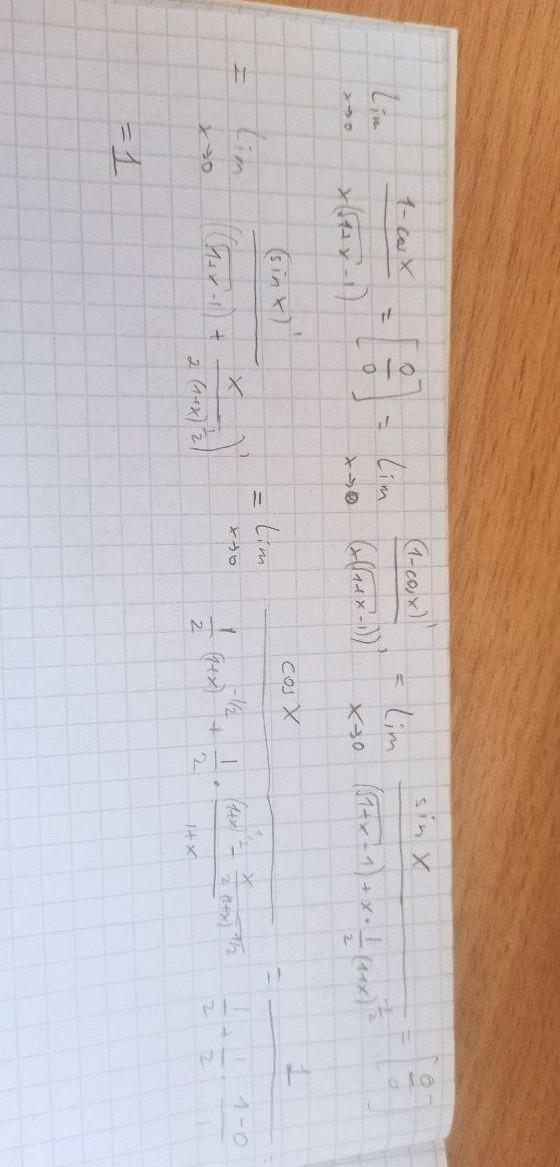 lim x→0 (1-cos x)/(x(√(1+x) -1)) = [0/0] = lim x→0 (1-cos x)'/(x(√(1+x) -1))' = lim x→0 sin x/((√(1+x) -1) + x·1/2 (1+x)^(-1/2)) = [0/0]
= lim x→0 (sin x)'/((√(1+x) -1) + x/(2(1+x)^(1/2)))' = lim x→0 cos x/(1/2 (1+x)^(-1/2) + 1/2 · ((1+x)^(1/2) - x/(2(1+x)^(1/2)))/(1+x)) = 1/(1/2 + 1/2 · (1-0)/1) =
= 1